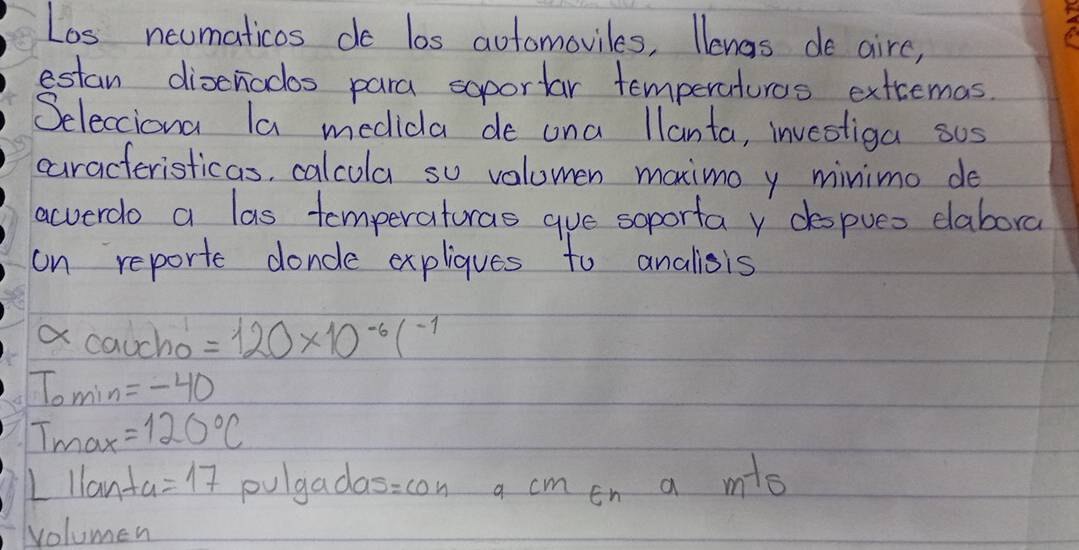 Los neumaticos de los automoviles, llenas de aire,
estan diseñados para soportar temperaturas extremas.
Selecciona la medida de una llanta, investiga sus
caracteristicas. calcula su volumen maximo y minimo de
acuerdo a las temperaturas que soporta y despues elabora
un reporte donde expliques tu analisis
α caucho = 120×10⁻⁶(⁻¹
Tomin = -40
Tmax = 120°C
L llanta = 17 pulgadas = con a cm En a mts
volumen